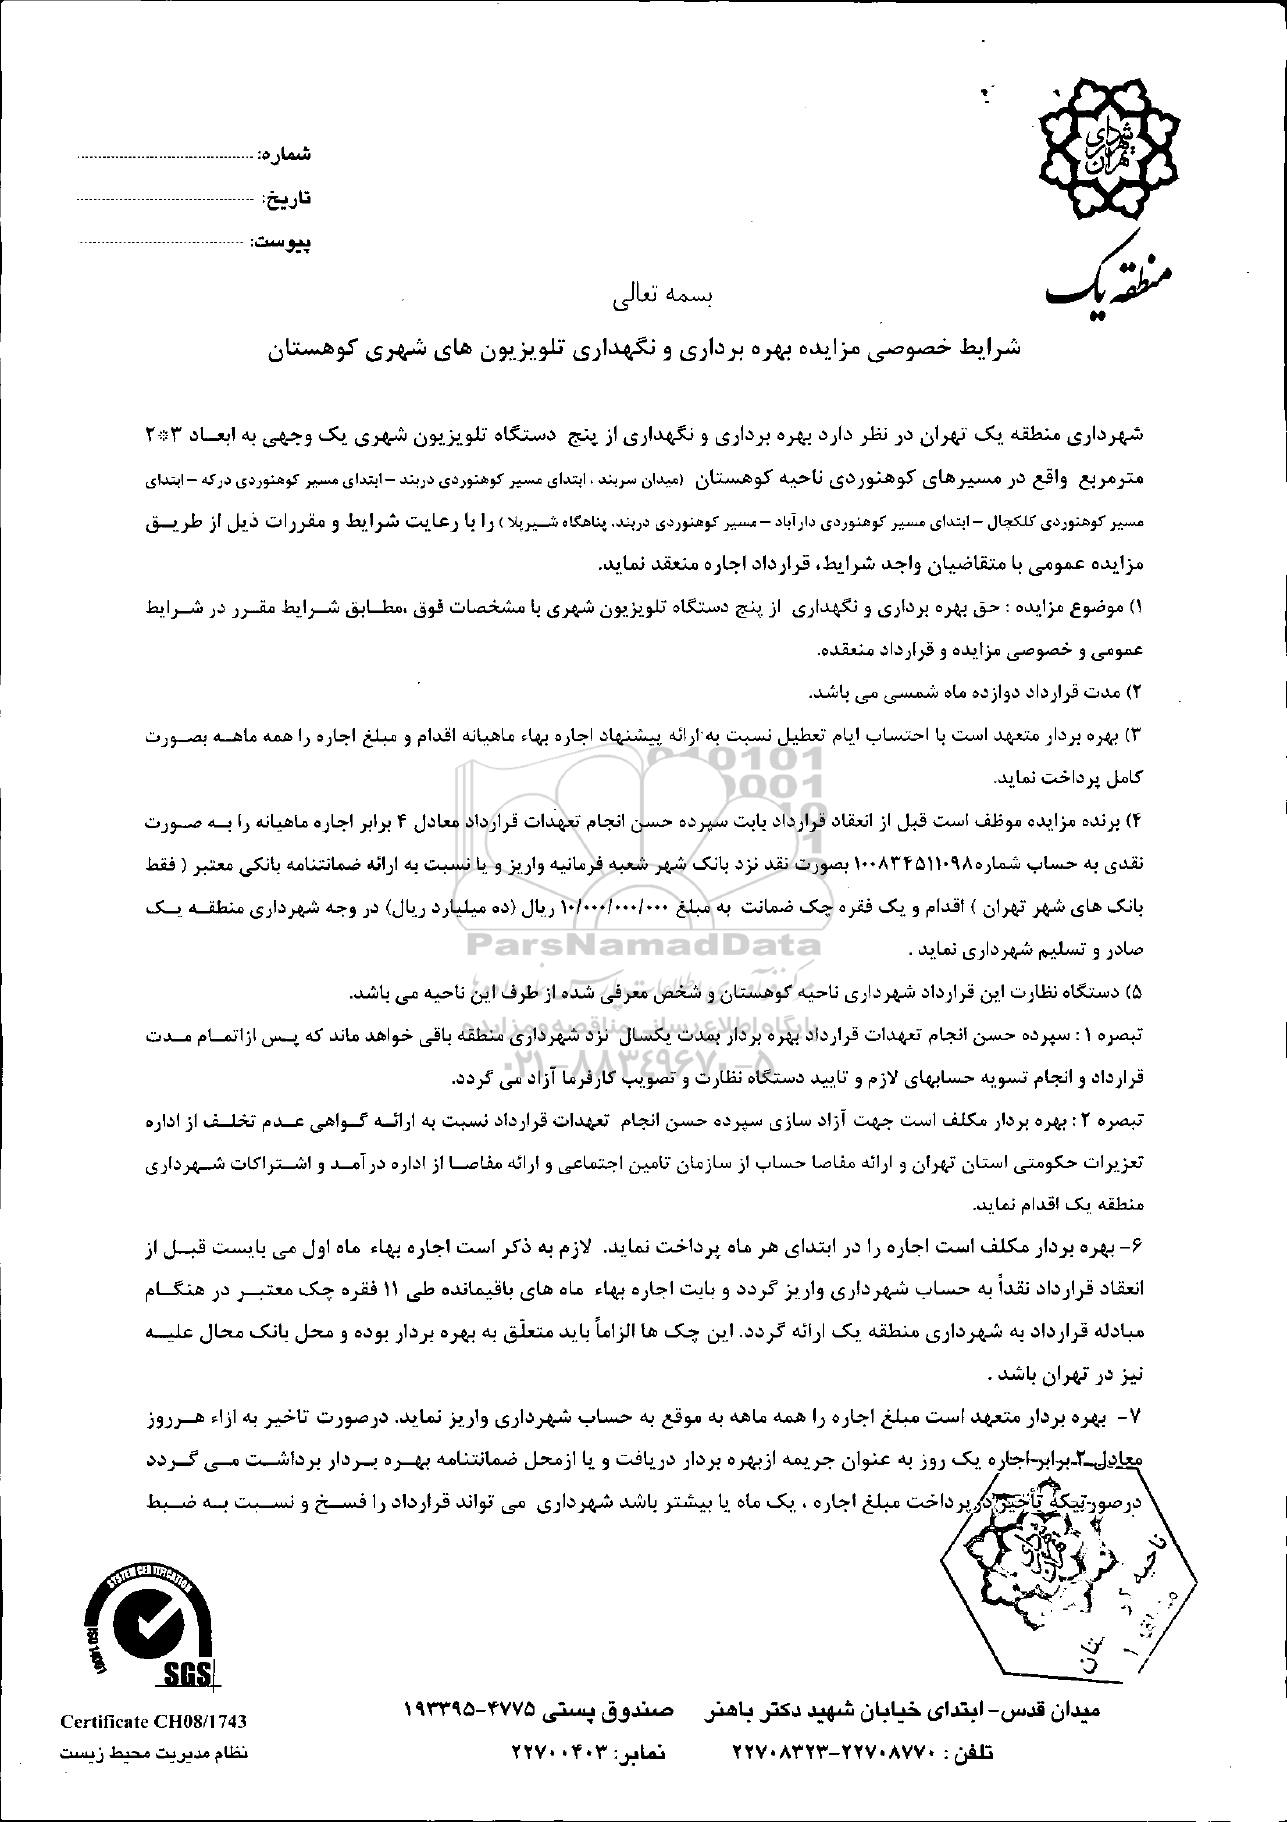 شهرداری تهران
منطقه یک
شماره:
تاریخ:
پیوست:
بسمه تعالی
شرایط خصوصی مزایده بهره برداری و نگهداری تلویزیون های شهری کوهستان
شهرداری منطقه یک تهران در نظر دارد بهره برداری و نگهداری از پنج دستگاه تلویزیون شهری یک وجهی به ابعاد ۳*۲
مترمربع واقع در مسیرهای کوهنوردی ناحیه کوهستان (میدان سربند ، ابتدای مسیر کوهنوردی دربند –ابتدای مسیر کوهنوردی درکه –ابتدای
مسیر کوهنوردی کلکچال –ابتدای مسیر کوهنوردی دارآباد –مسیر کوهنوردی دربند، پناهگاه شیرپلا) را با رعایت شرایط و مقررات ذیل از طریق
مزایده عمومی با متقاضیان واجد شرایط، قرارداد اجاره منعقد نماید.
۱) موضوع مزایده : حق بهره برداری و نگهداری از پنج دستگاه تلویزیون شهری با مشخصات فوق ،مطابق شرایط مقرر در شرایط
عمومی و خصوصی مزایده و قرارداد منعقده.
۲) مدت قرارداد دوازده ماه شمسی می باشد.
۳) بهره بردار متعهد است با احتساب ایام تعطیل نسبت به ارائه پیشنهاد اجاره بهاء ماهیانه اقدام و مبلغ اجاره را همه ماهه بصورت
کامل پرداخت نماید.
۴) برنده مزایده موظف است قبل از انعقاد قرارداد بابت سپرده حسن انجام تعهدات قرارداد معادل ۴ برابر اجاره ماهیانه را به صورت
نقدی به حساب شماره۱۰۰۸۳۴۵۱۱۰۹۸ بصورت نقد نزد بانک شهر شعبه فرمانیه واریز و یا نسبت به ارائه ضمانتنامه بانکی معتبر ( فقط
بانک های شهر تهران ) اقدام و یک فقره چک ضمانت به مبلغ ۱۰/۰۰۰/۰۰۰/۰۰۰ ریال (ده میلیارد ریال) در وجه شهرداری منطقه یک
صادر و تسلیم شهرداری نماید .
۵) دستگاه نظارت این قرارداد شهرداری ناحیه کوهستان و شخص معرفی شده از طرف این ناحیه می باشد.
تبصره ۱ : سپرده حسن انجام تعهدات قرارداد بهره بردار بمدت یکسال نزد شهرداری منطقه باقی خواهد ماند که پس ازاتمام مدت
قرارداد و انجام تسویه حسابهای لازم و تایید دستگاه نظارت و تصویب کارفرما آزاد می گردد.
تبصره ۲ : بهره بردار مکلف است جهت آزاد سازی سپرده حسن انجام تعهدات قرارداد نسبت به ارائه گواهی عدم تخلف از اداره
تعزیرات حکومتی استان تهران و ارائه مفاصا حساب از سازمان تامین اجتماعی و ارائه مفاصا از اداره درآمد و اشتراکات شهرداری
منطقه یک اقدام نماید.
۶- بهره بردار مکلف است اجاره را در ابتدای هر ماه پرداخت نماید. لازم به ذکر است اجاره بهاء ماه اول می بایست قبل از
انعقاد قرارداد نقداً به حساب شهرداری واریز گردد و بابت اجاره بهاء ماه های باقیمانده طی ۱۱ فقره چک معتبر در هنگام
مبادله قرارداد به شهرداری منطقه یک ارائه گردد. این چک ها الزاماً باید متعلق به بهره بردار بوده و محل بانک محال علیه
نیز در تهران باشد .
۷- بهره بردار متعهد است مبلغ اجاره را همه ماهه به موقع به حساب شهرداری واریز نماید. درصورت تاخیر به ازاء هرروز
معادل ۲ برابر اجاره یک روز به عنوان جریمه ازبهره بردار دریافت و یا ازمحل ضمانتنامه بهره بردار برداشت می گردد
درصورتیکه تأخیر در پرداخت مبلغ اجاره ، یک ماه یا بیشتر باشد شهرداری می تواند قرارداد را فسخ و نسبت به ضبط
ParsNamadData
پایگاه اطلاع رسانی مناقصه و مزایده
۰۲۱-۸۸۳۴۹۶۷۰-۵
SYSTEM CERTIFICATION
ISO 14001
SGS
Certificate CH08/1743
نظام مدیریت محیط زیست
میدان قدس- ابتدای خیابان شهید دکتر باهنر صندوق پستی ۴۷۷۵-۱۹۳۳۹۵
تلفن : ۲۲۷۰۸۷۷۰-۲۲۷۰۸۳۲۳ نمابر: ۲۲۷۰۰۴۰۳